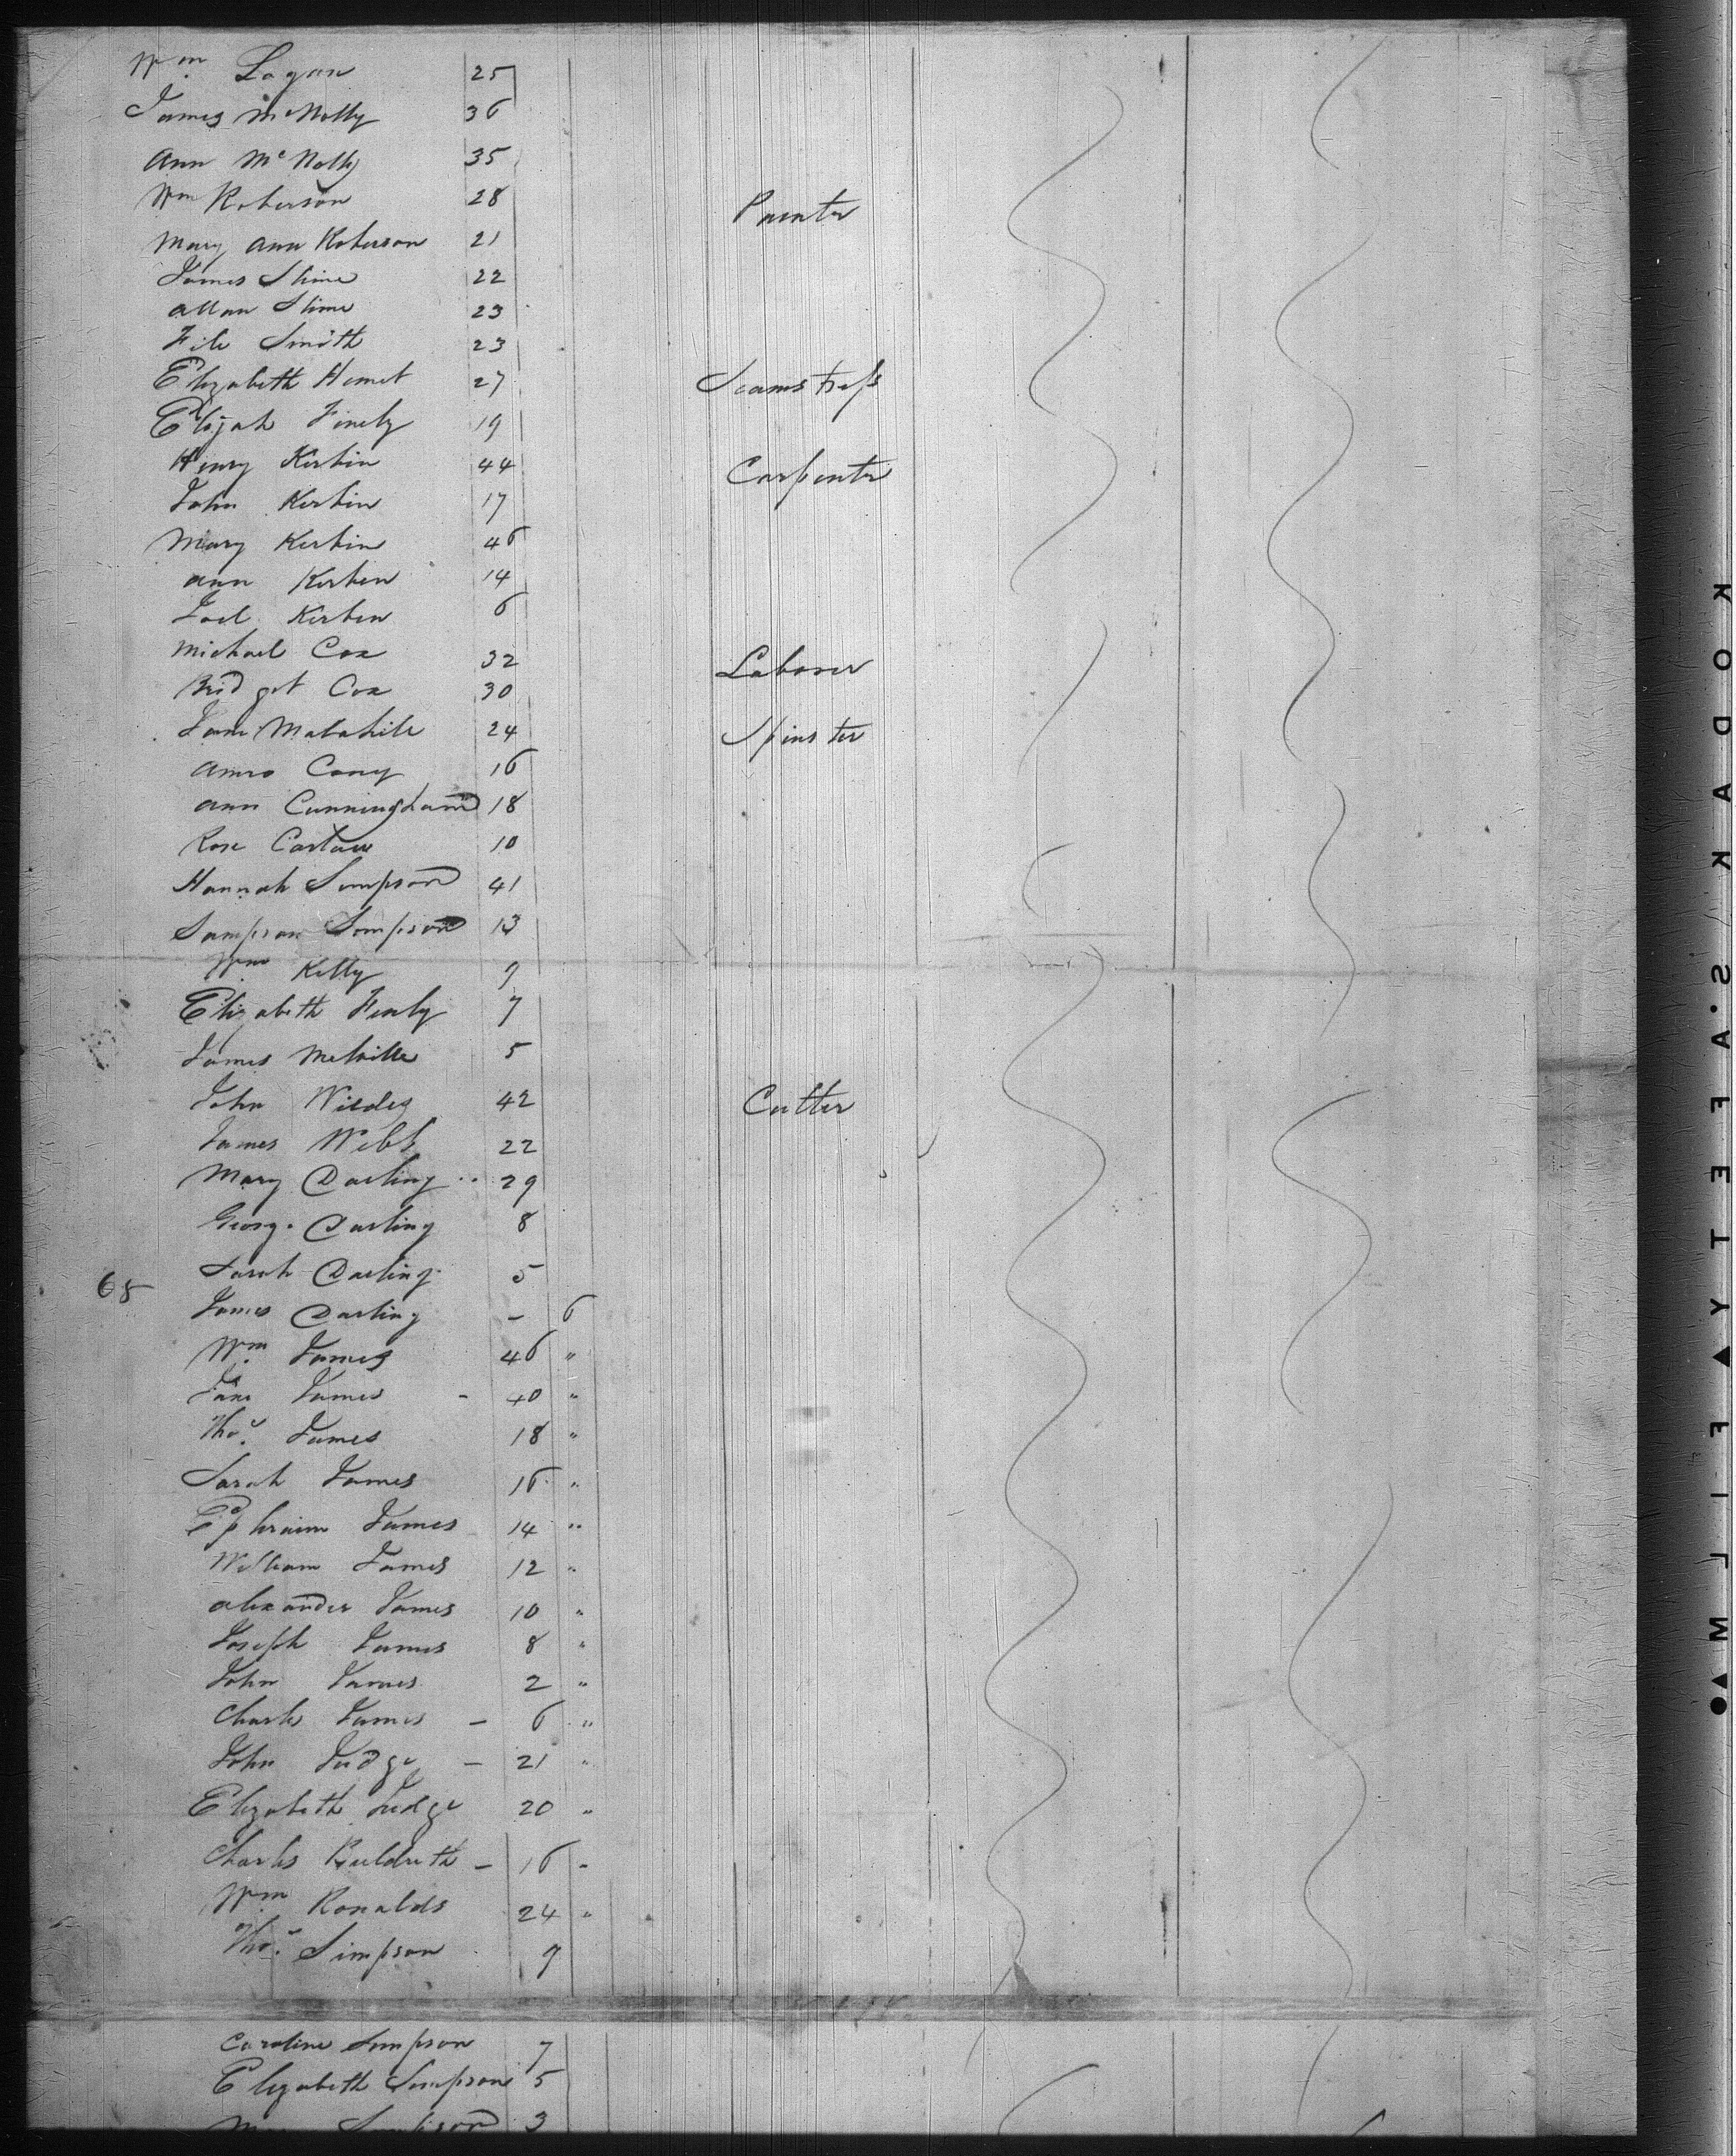 Wm. Logan 25
James McNolly 36
Ann McNolly 35
Wm Roberson 28 Painter
Mary Ann Roberson 21
James Slime 22
Allan Slime 23
Smith 23
Elizabeth Hemet 27 Seamstress
Elijah Finely 19
Henry Kirbin 44 Carpenter
John Kirbin 17
Mary Kirbin 46
Ann Kirbin 14
Joel Kirbin 6
Michael Cox 32 Laborer
Bridget Cox 30
Jane 24 Spinster
16
Ann Cunningham 18
Rose 10
Hannah Simpson 41
Sampson Simpson 13
Wm Kelly 9
Elizabeth Finly 7
James Melville 5
John Wildes 42 Cutter
James Webb 22
Mary Darling 29
George Darling 8
65 Sarah Darling 5
James Darling - 6
Wm James 46 "
Jane James - 40 "
Thos. James 18 "
Sarah James 16 "
Ephraim James 14 "
William James 12 "
Alexander James 10 "
Joseph James 8 "
John James 2 "
Charls James - 6 "
John Judge - 21 "
Elizabeth Judge 20 "
Charls - 16 -
Wm. Ronalds 24 "
Thos. Simpson 9
Caroline Simpson 7
Elizabeth Simpson 5
Simpson 3
KODAK S.AFETY ▲ FILM ▲●